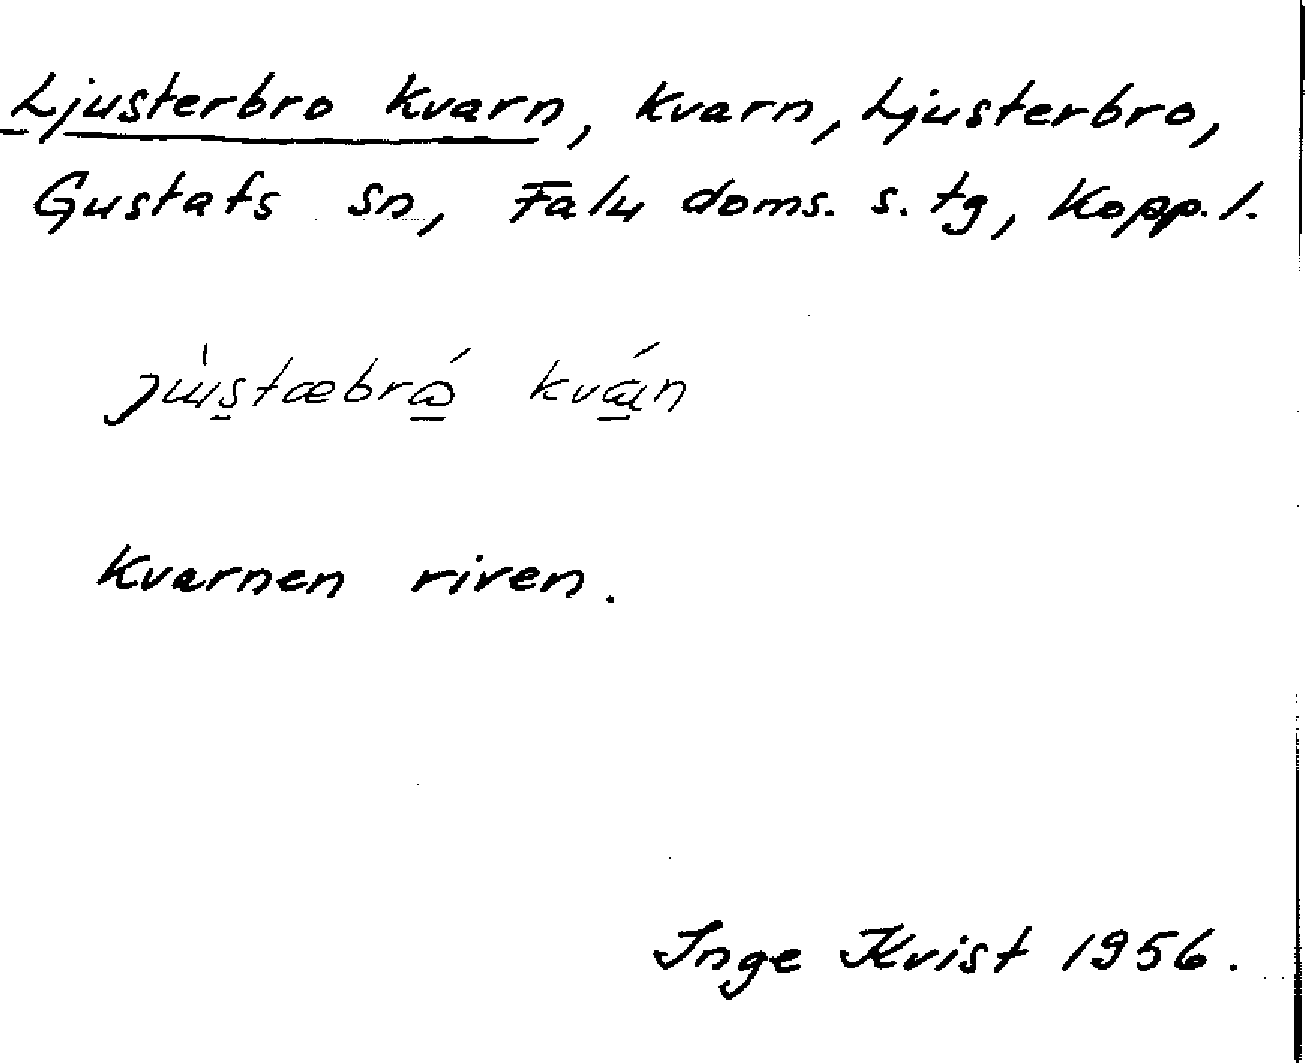 Ljusterbro kvarn, kvarn, Ljusterbro,
Gustafs sn, Falu doms. s. tg, Kopp. l.
Kvarnen riven.
Inge Kvist 1956.